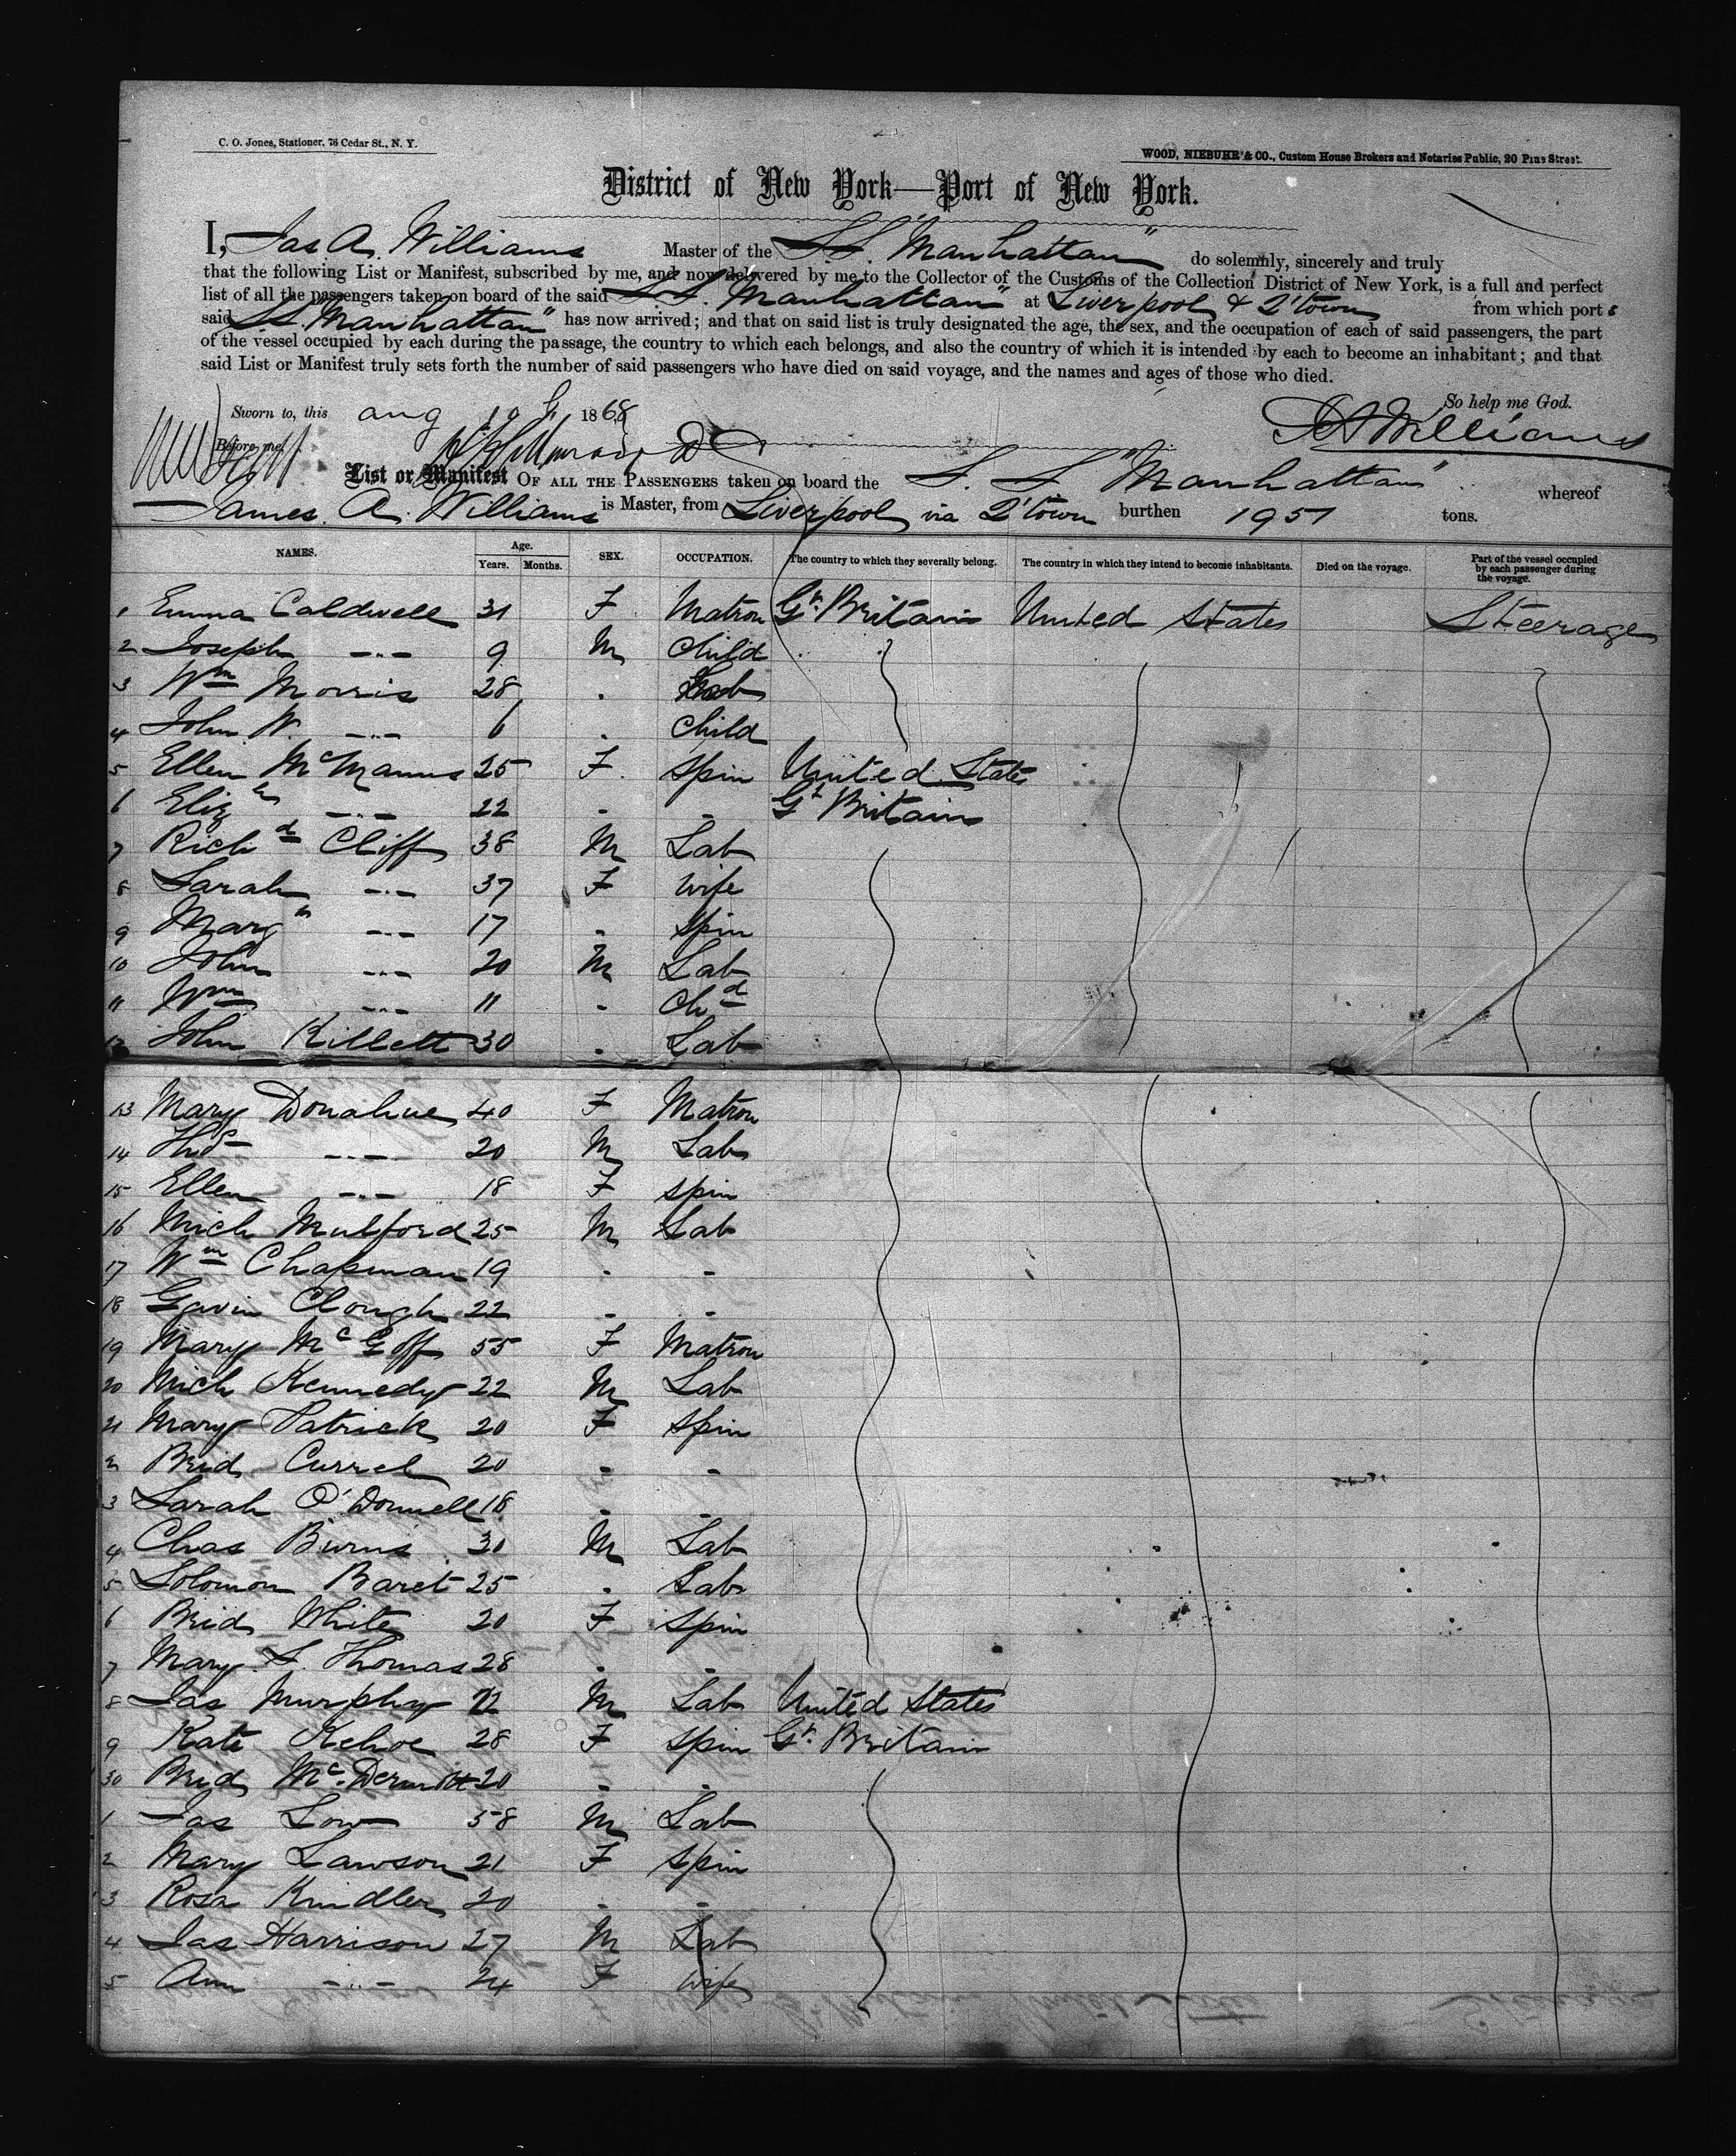 C. O. Jones, Stationer, 76 Cedar St., N. Y.
WOOD, NIEBUHR & CO., Custom House Brokers and Notaries Public, 20 Pine Street.
District of New York—Port of New York.
I, Jas A. Williams Master of the S.S. "Manhattan" do solemnly, sincerely and truly
that the following List or Manifest, subscribed by me, and now delivered by me to the Collector of the Customs of the Collection District of New York, is a full and perfect
list of all the passengers taken on board of the said S.S. "Manhattan" at Liverpool & Q'town from which ports
said S.S. "Manhattan" has now arrived; and that on said list is truly designated the age, the sex, and the occupation of each of said passengers, the part
of the vessel occupied by each during the passage, the country to which each belongs, and also the country of which it is intended by each to become an inhabitant; and that
said List or Manifest truly sets forth the number of said passengers who have died on said voyage, and the names and ages of those who died.
So help me God.
Sworn to, this aug 1868
JA Williams
Before me,
List or Manifest OF ALL THE PASSENGERS taken on board the S. S. "Manhattan" whereof
James. A. Williams is Master, from Liverpool via Q'town burthen 1957 tons.
NAMES. Age. Years. Months. SEX. OCCUPATION. The country to which they severally belong. The country in which they intend to become inhabitants. Died on the voyage. Part of the vessel occupied by each passenger during the voyage.
1 Emma Caldwell 31 F Matron Gt. Britain United States Steerage
2 Joseph -"- 9 M Child
3 Wm Morris 28 . Lab
4 John W. -"- 6 . Child
5 Ellen McManus 25 F. Spin United States
6 Elizh -"- 22 - - Gt Britain
7 Richd Cliff 38 M Lab
8 Sarah -"- 37 F Wife
9 Margt -"- 17 - Spin
10 John -"- 20 M Lab
11 Wm -"- 11 - Chd
12 John Killett 30 . Lab
13 Mary Donahue 40 F Matron
14 Thos -"- 20 M Lab
15 Ellen -"- 18 F Spin
16 Mich Mulford 25 M Lab
17 Wm Chapman 19 - -
18 Gavin Clough 22 - -
19 Mary McGoff 55 F Matron
20 Mich Kennedy 22 M Lab
21 Mary Patrick 20 F Spin
2 Brid Currel 20 - -
3 Sarah O'Donnell 18 - -
4 Chas Burns 30 M Lab
5 Solomon Baret 25 . Lab
6 Brid White 20 F Spin
7 Mary S. Thomas 28 - -
8 Jas Murphy M Lab United States
9 Kate Kehoe 28 F Spin Gt. Britain
30 Brid McDermott 20 - -
1 Jas Low 58 M Lab
2 Mary Lawson 21 F Spin
3 Rosa Kindler 20 - -
4 Jas Harrison 27 M Lab
5 Ann -"- 24 F Wife